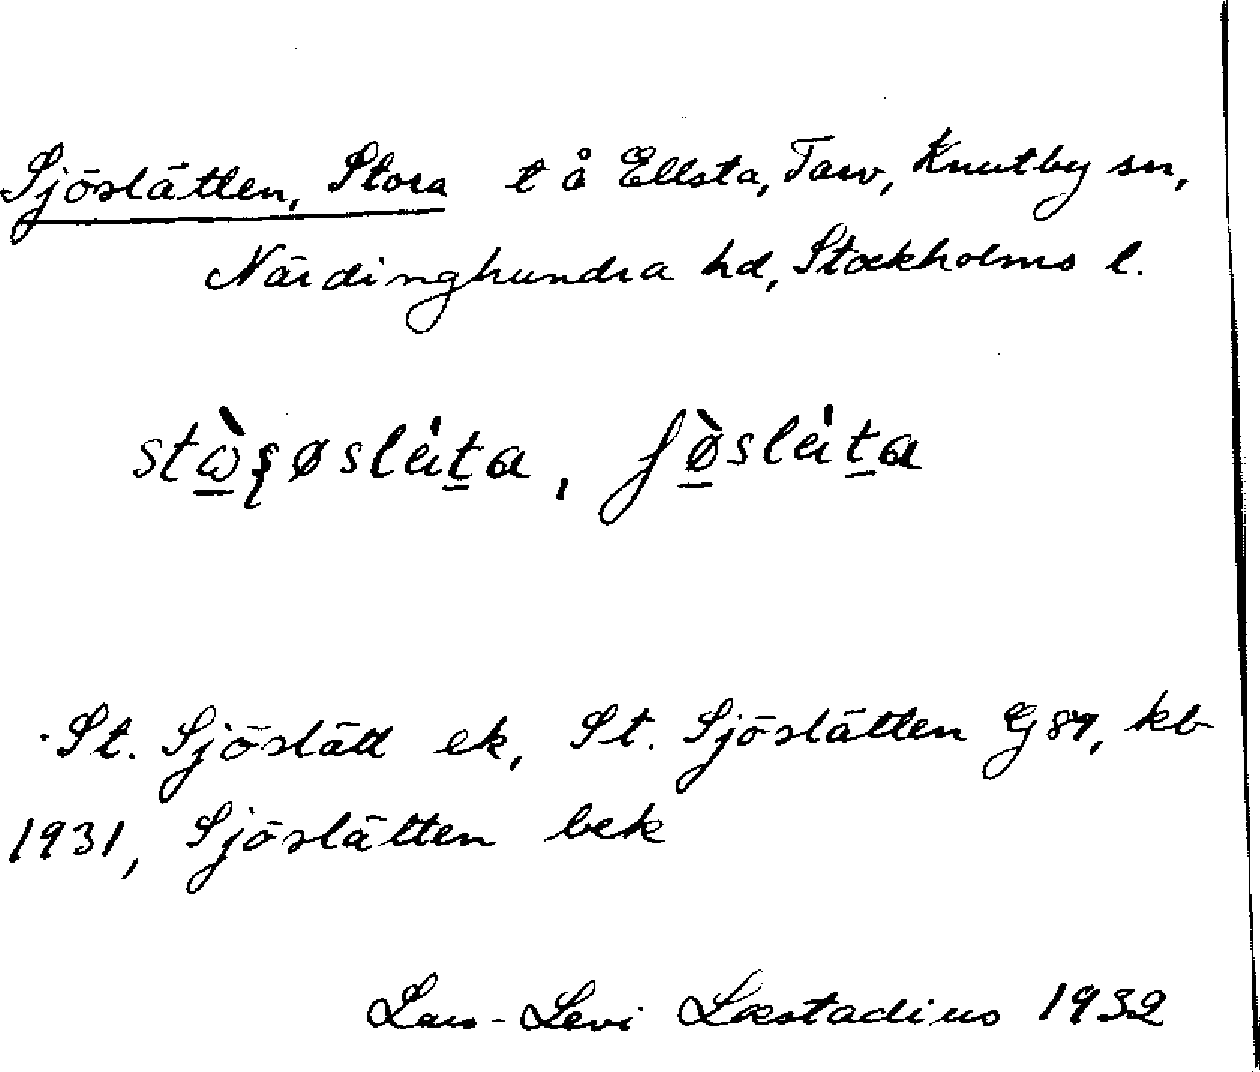 Sjöslätten, Stora t å Ellsta, Tarv, Knutby sn,
Närdinghundra hd, Stockholms l.
St. Sjöslätt ek, St. Sjöslätten G 87, kb
1931, Sjöslätten bek
Lars-Levi Læstadius 1932